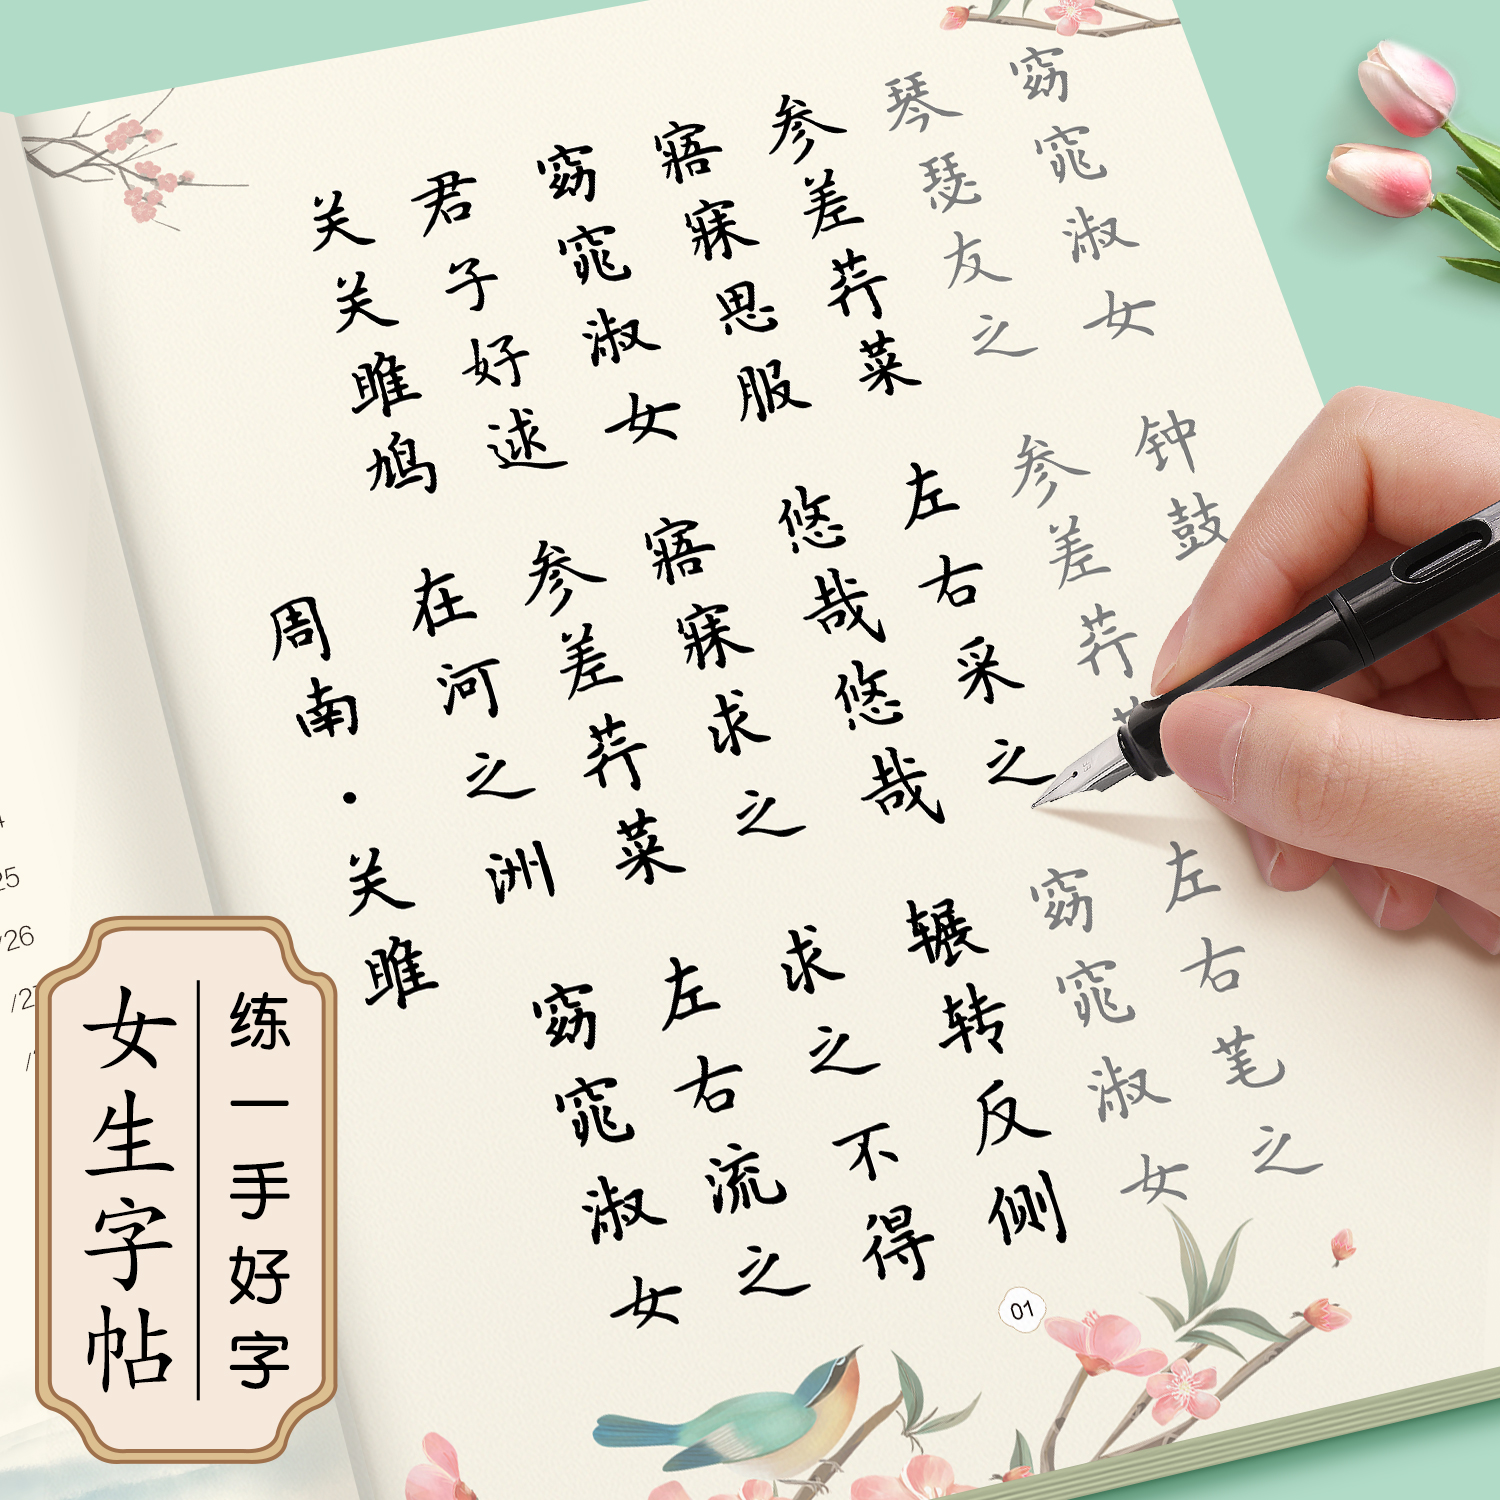 周南·关雎
关关雎鸠 在河之洲 窈窕淑女
君子好逑 参差荇菜 左右流之
窈窕淑女 寤寐求之 求之不得
寤寐思服 悠哉悠哉 辗转反侧
参差荇菜 左右采之 窈窕淑女
琴瑟友之 参差荇 左右芼之
窈窕淑女 钟鼓
01
/26
女生字帖
练一手好字